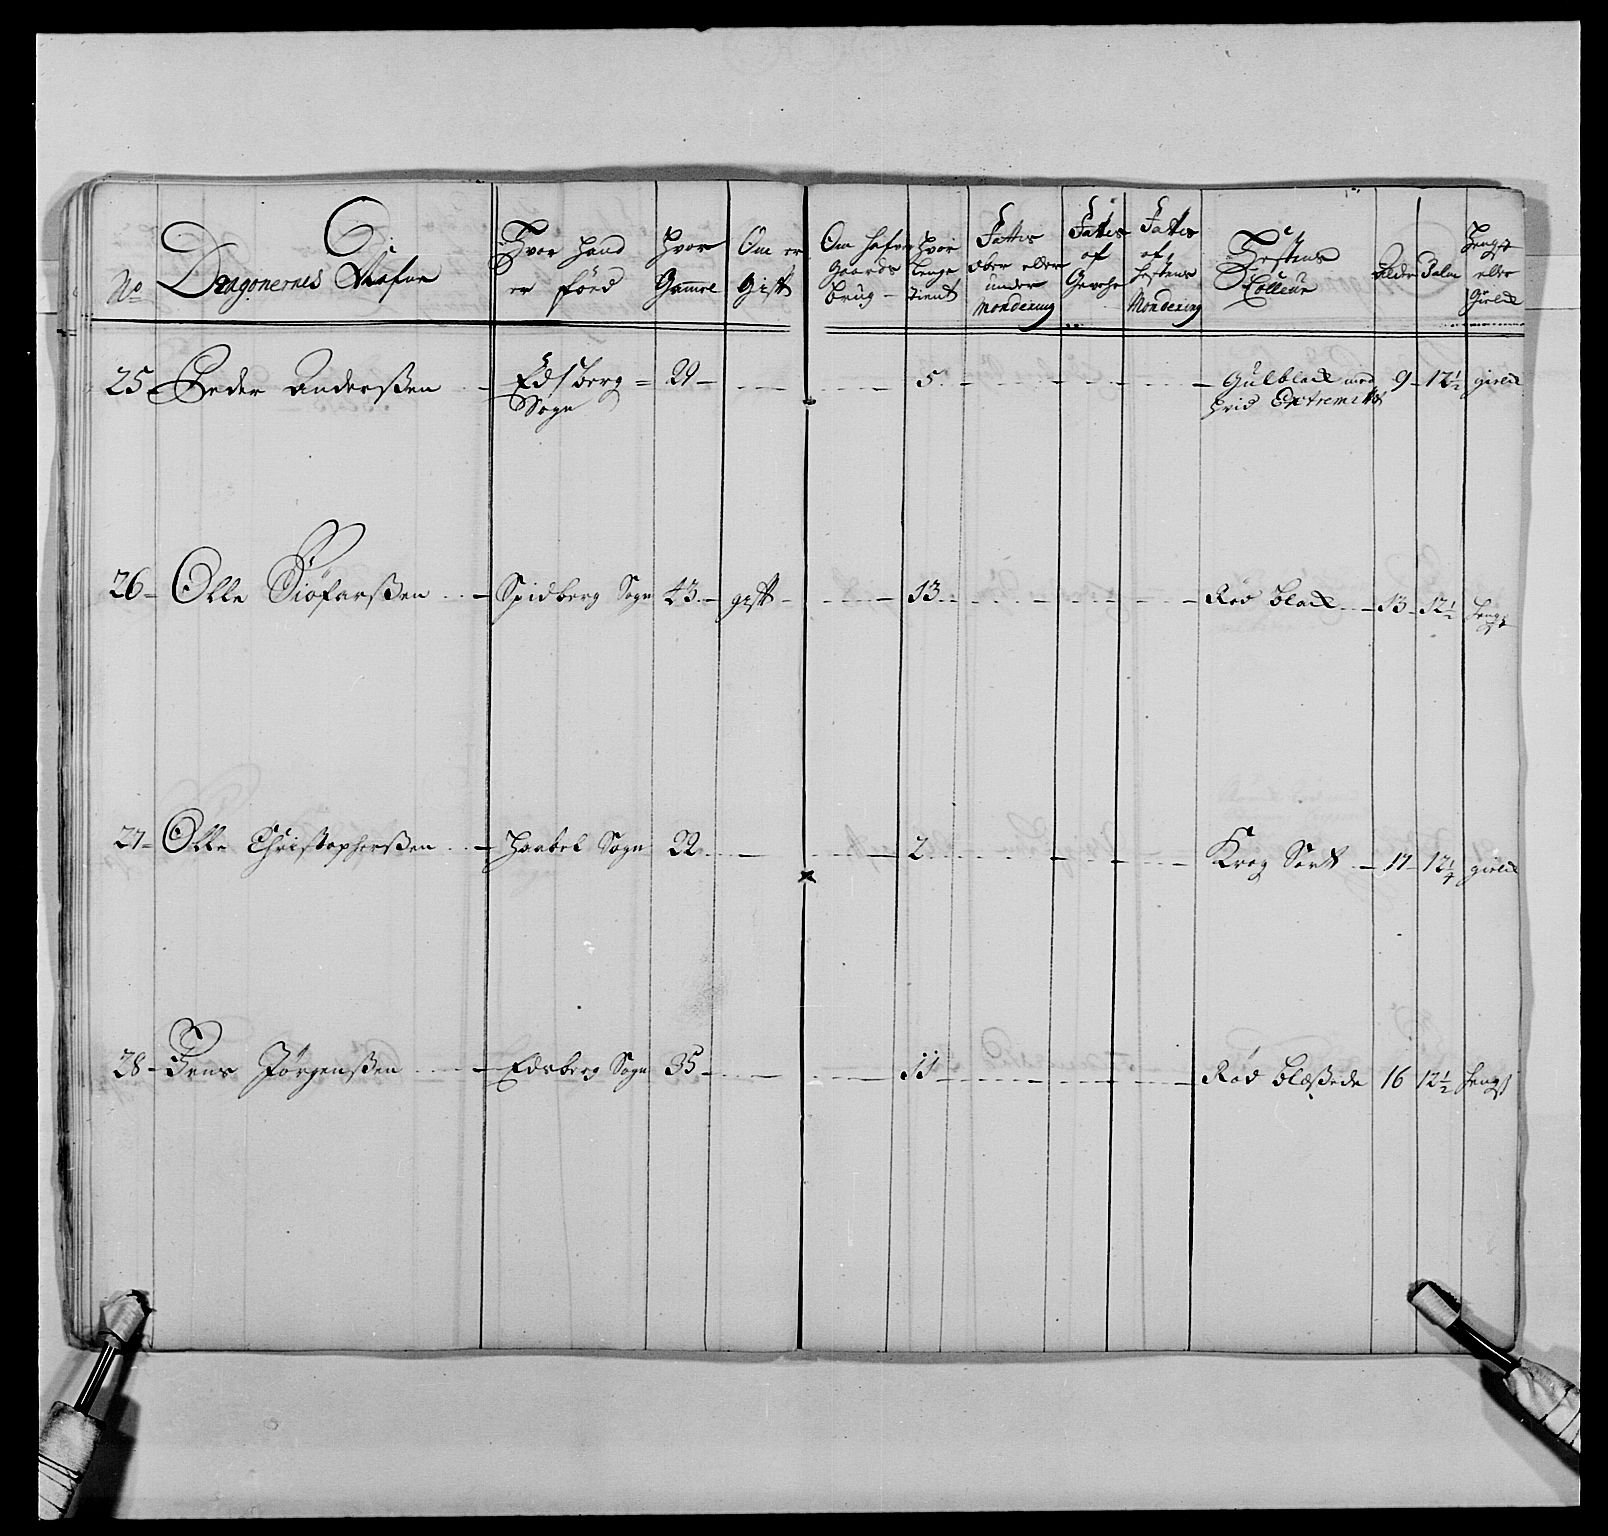 No Dragonernes Nafne
Hvor hand er föed
Hvor Gamel
Om er Gift
Om hafver Gaards brug
Hvor lenge tient
Fattis Ober eller under Mondering
Fattis af Gevehr
Fattis af hestens Mondering
Hestens Colleur
Alder
Palm
Hengst eller Gilled
25 Peder Anderßen Edsberg Sogn 29 5 Gulblack med hvid Extremitet 9 12½
26 Olle Spidberg Sogn 43 gift 13 Rød black 13 12½ Hengst
27 Olle Christopherßen Haabel Sogn 22 2 Sort 17 12¼
28 Jens Jörgenßen Edsberg Sogn 35 11 Rød blæßede 16 12½ Hengst